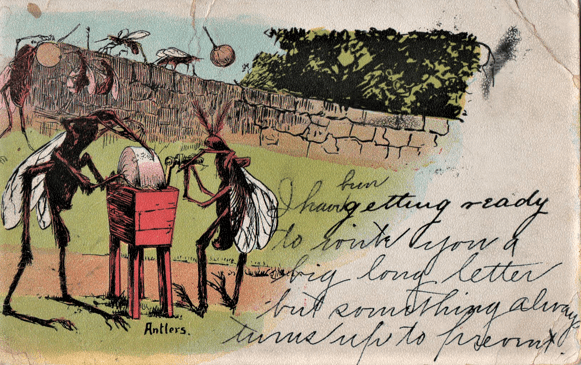 Antlers.
bun
I have getting ready
to write you a
big long letter
but something always
turns up to prevent.